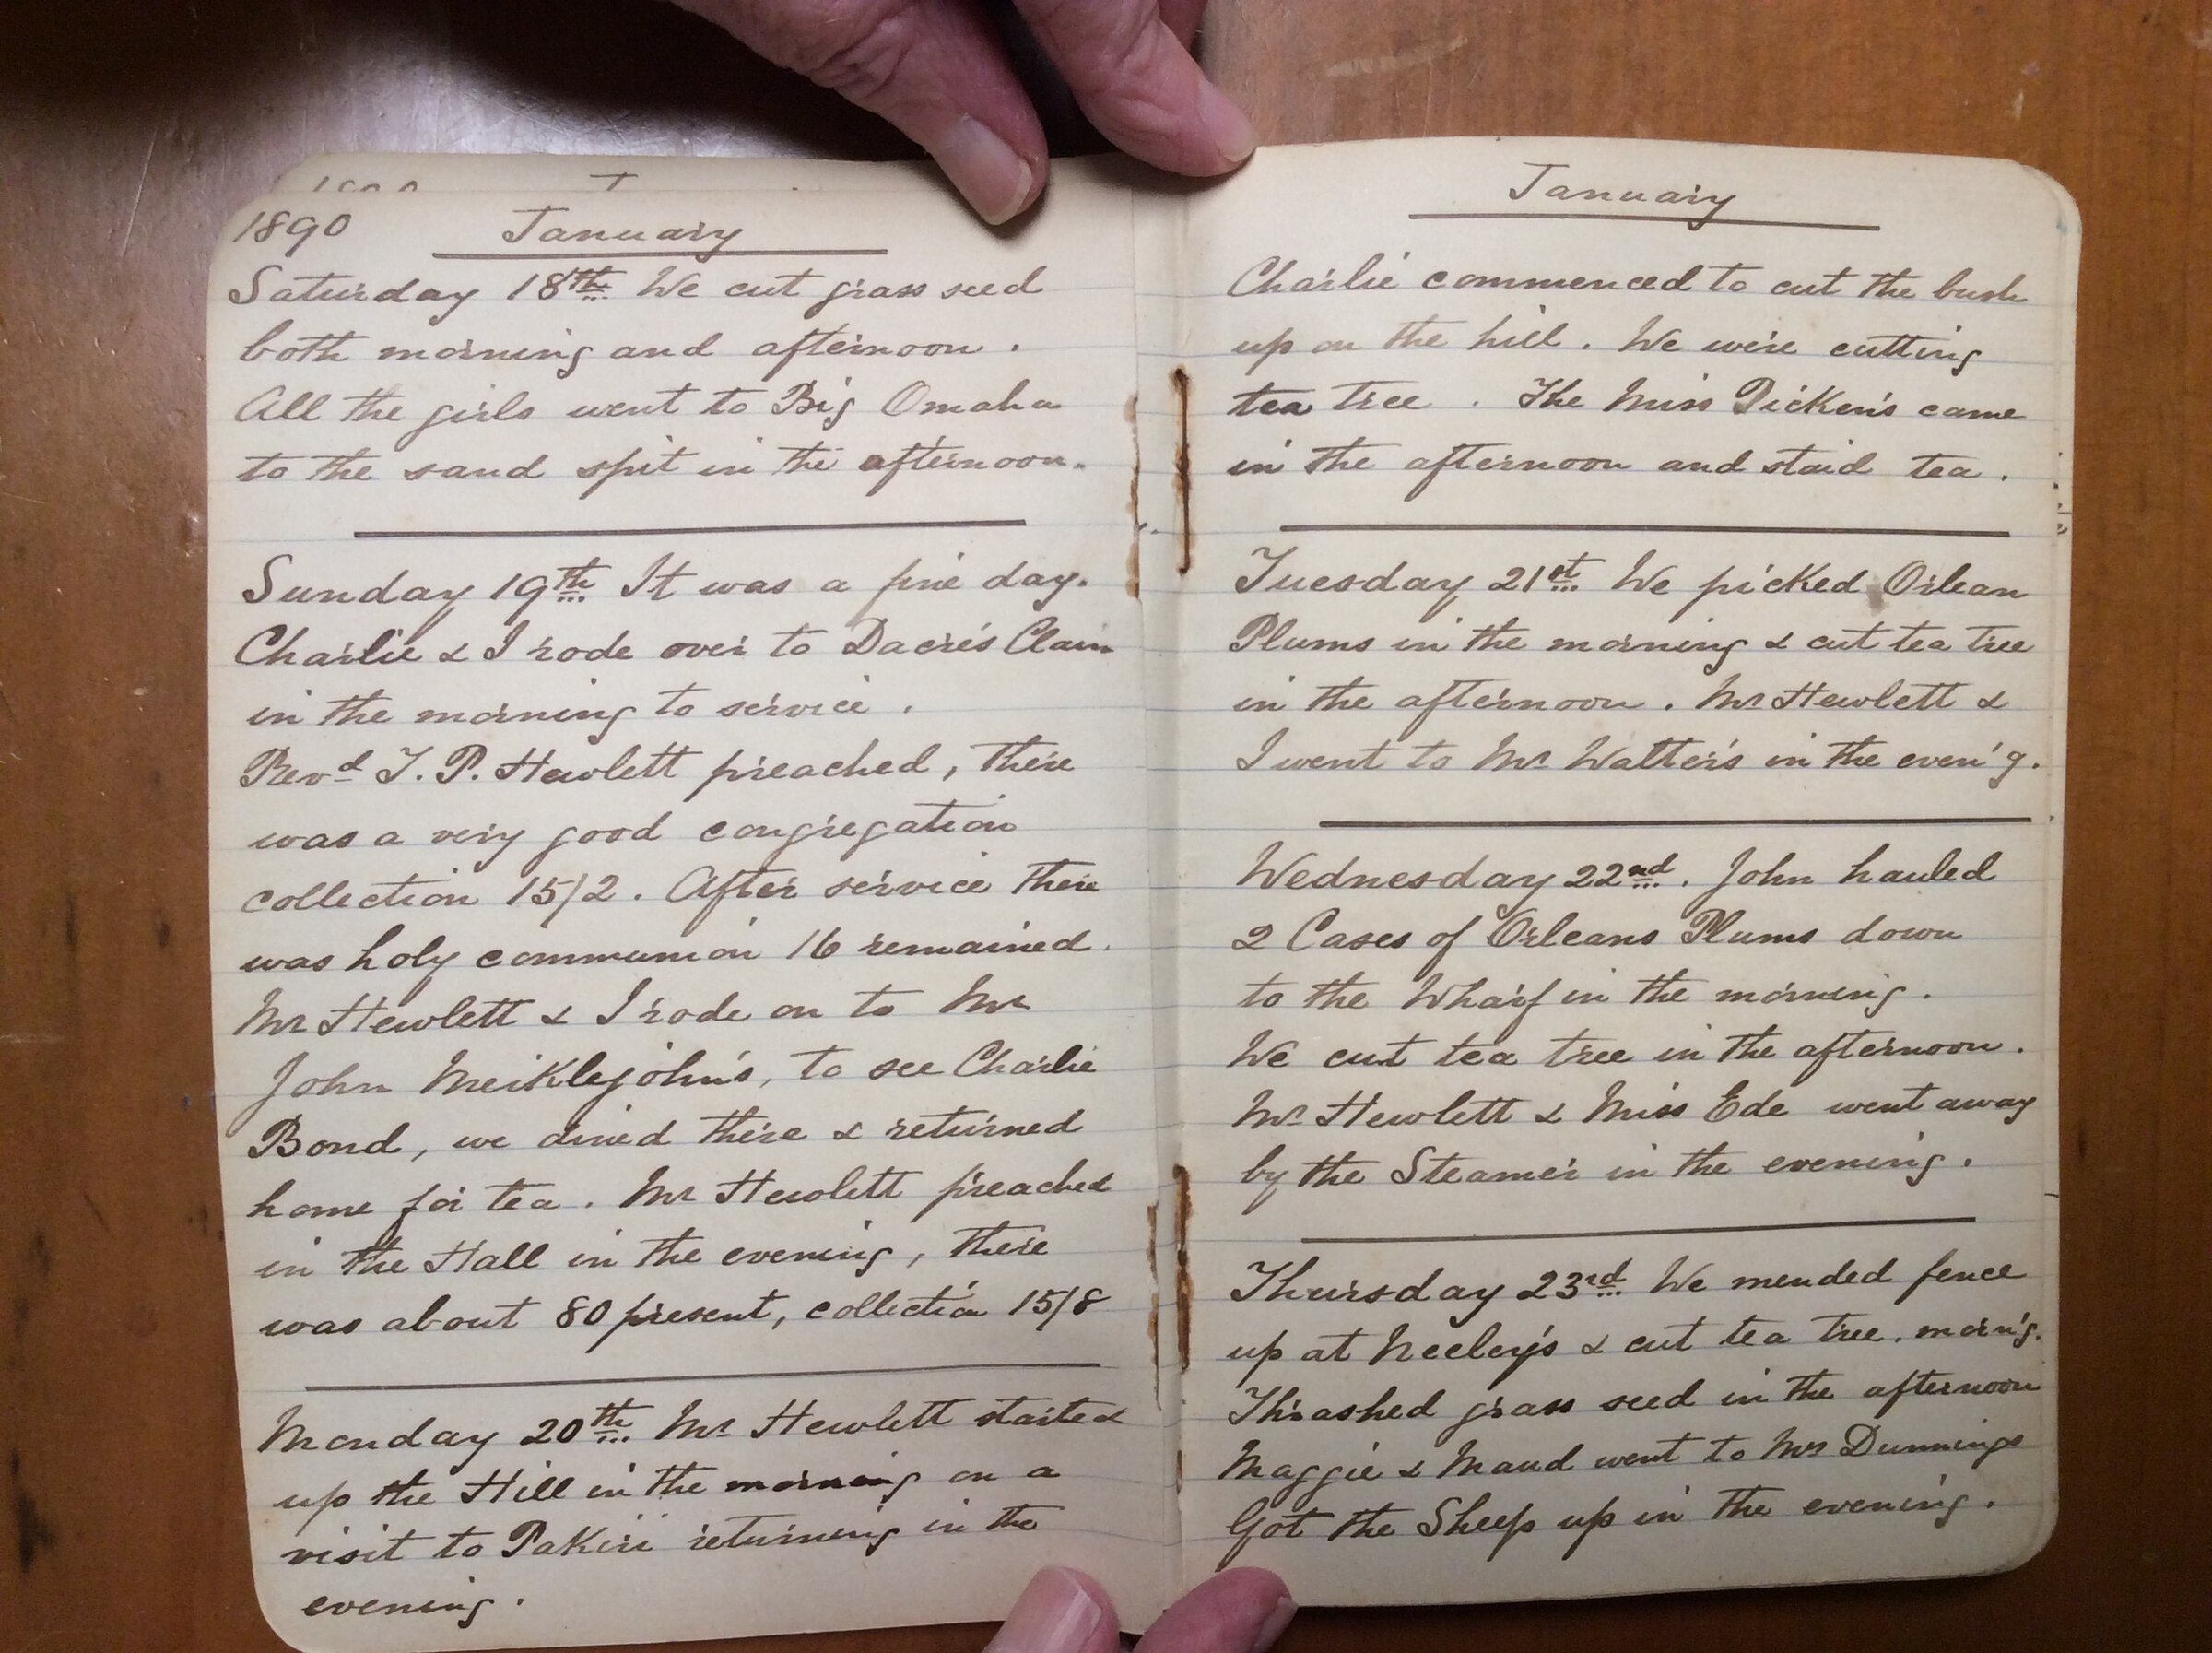 1890 January
Saturday 18th We cut grass seed
both morning and afternoon.
All the girls went to Big Omaha
to the sand spit in the afternoon.
Sunday 19th It was a fine day.
Charlie & I rode over to Dacre's Claim
in the morning to service.
Revd T. P. Hewlett preached, there
was a very good congregation
collection 15/2. After service there
was holy communion 16 remained.
Mr Hewlett & I rode on to Mr
John Meiklejohn's, to see Charlie
Bond, we dined there & returned
home for tea. Mr Hewlett preached
in the Hall in the evening, there
was about 80 present, collection 15/8
Monday 20th Mr Hewlett started
up the Hill in the morning on a
visit to Pakiri returning in the
evening.
January
Charlie commenced to cut the bush
up on the hill. We were cutting
tea tree. The Miss Dicken's came
in the afternoon and staid tea.
Tuesday 21st We picked Orlean
Plums in the morning & cut tea tree
in the afternoon. Mr Hewlett &
I went to Mr Walter's in the even'g.
Wednesday 22nd. John hauled
2 Cases of Orleans Plums down
to the Wharf in the morning.
We cut tea tree in the afternoon.
Mr Hewlett & Miss Ede went away
by the Steamer in the evening.
Thursday 23rd We mended fence
up at Neeley's & cut tea tree. morn'g.
Thrashed grass seed in the afternoon
Maggie & Maud went to Mrs Dunnings
Got the Sheep up in the evening.